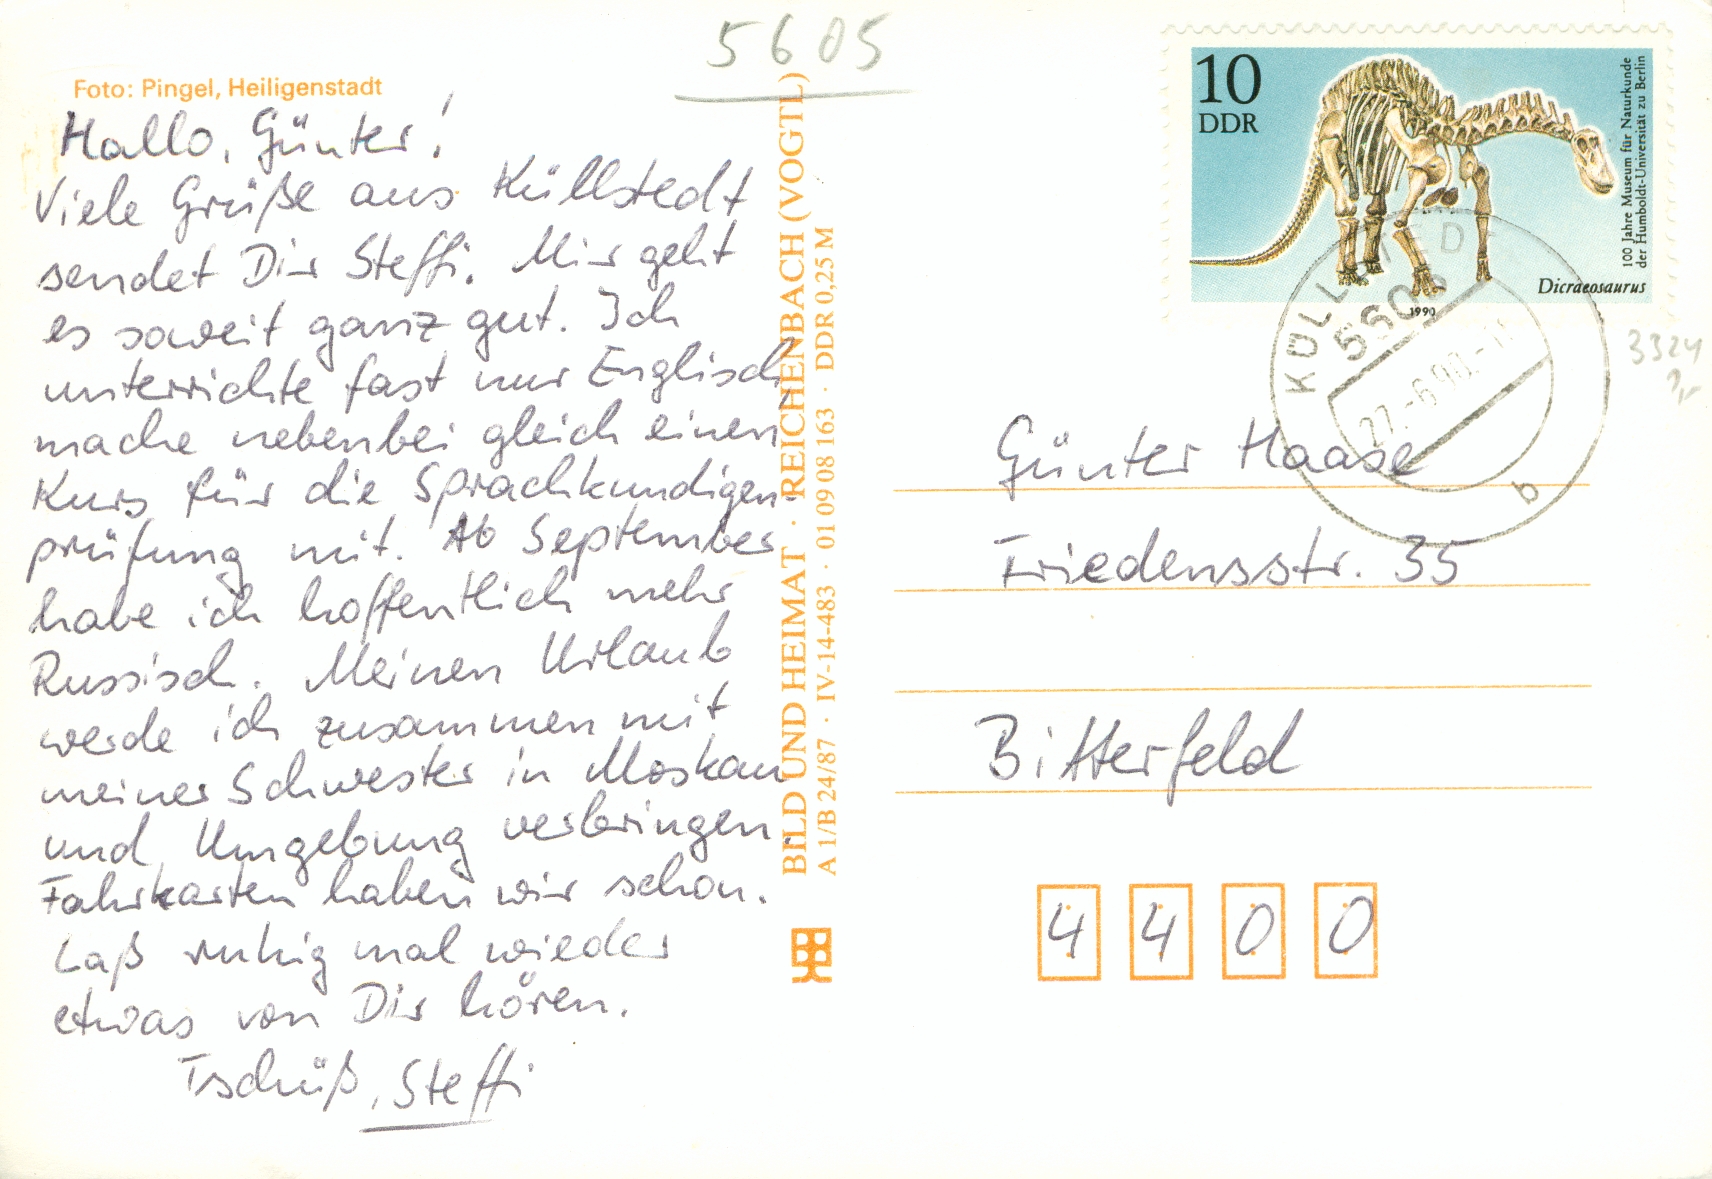 5605
Foto: Pingel, Heiligenstadt
Hallo, Günter!
Viele Grüße aus Küllstedt
sendet Dir Steffi. Mir geht
es soweit ganz gut. Ich
unterrichte fast nur Englisch,
mache nebenbei gleich einen
Kurs für die Sprachkundigen-
prüfung mit. Ab September
habe ich hoffentlich mehr
Russisch. Meinen Urlaub
werde ich zusammen mit
meiner Schwester in Moskau
und Umgebung verbringen.
Fahrkarten haben wir schon.
Laß ruhig mal wieder
etwas von Dir hören.
Tschüß, Steffi
BILD UND HEIMAT · REICHENBACH (VOGTL)
A 1/B 24/87 · IV-14-483 · 01 09 08 163 · DDR 0,25 M
10
DDR
100 Jahre Museum für Naturkunde
der Humboldt-Universität zu Berlin
Dicraeosaurus
1990
KÜLLSTEDT
5605
27.-6.90.-
b
3324
Günter Haase
Friedensstr. 35
Bitterfeld
4400